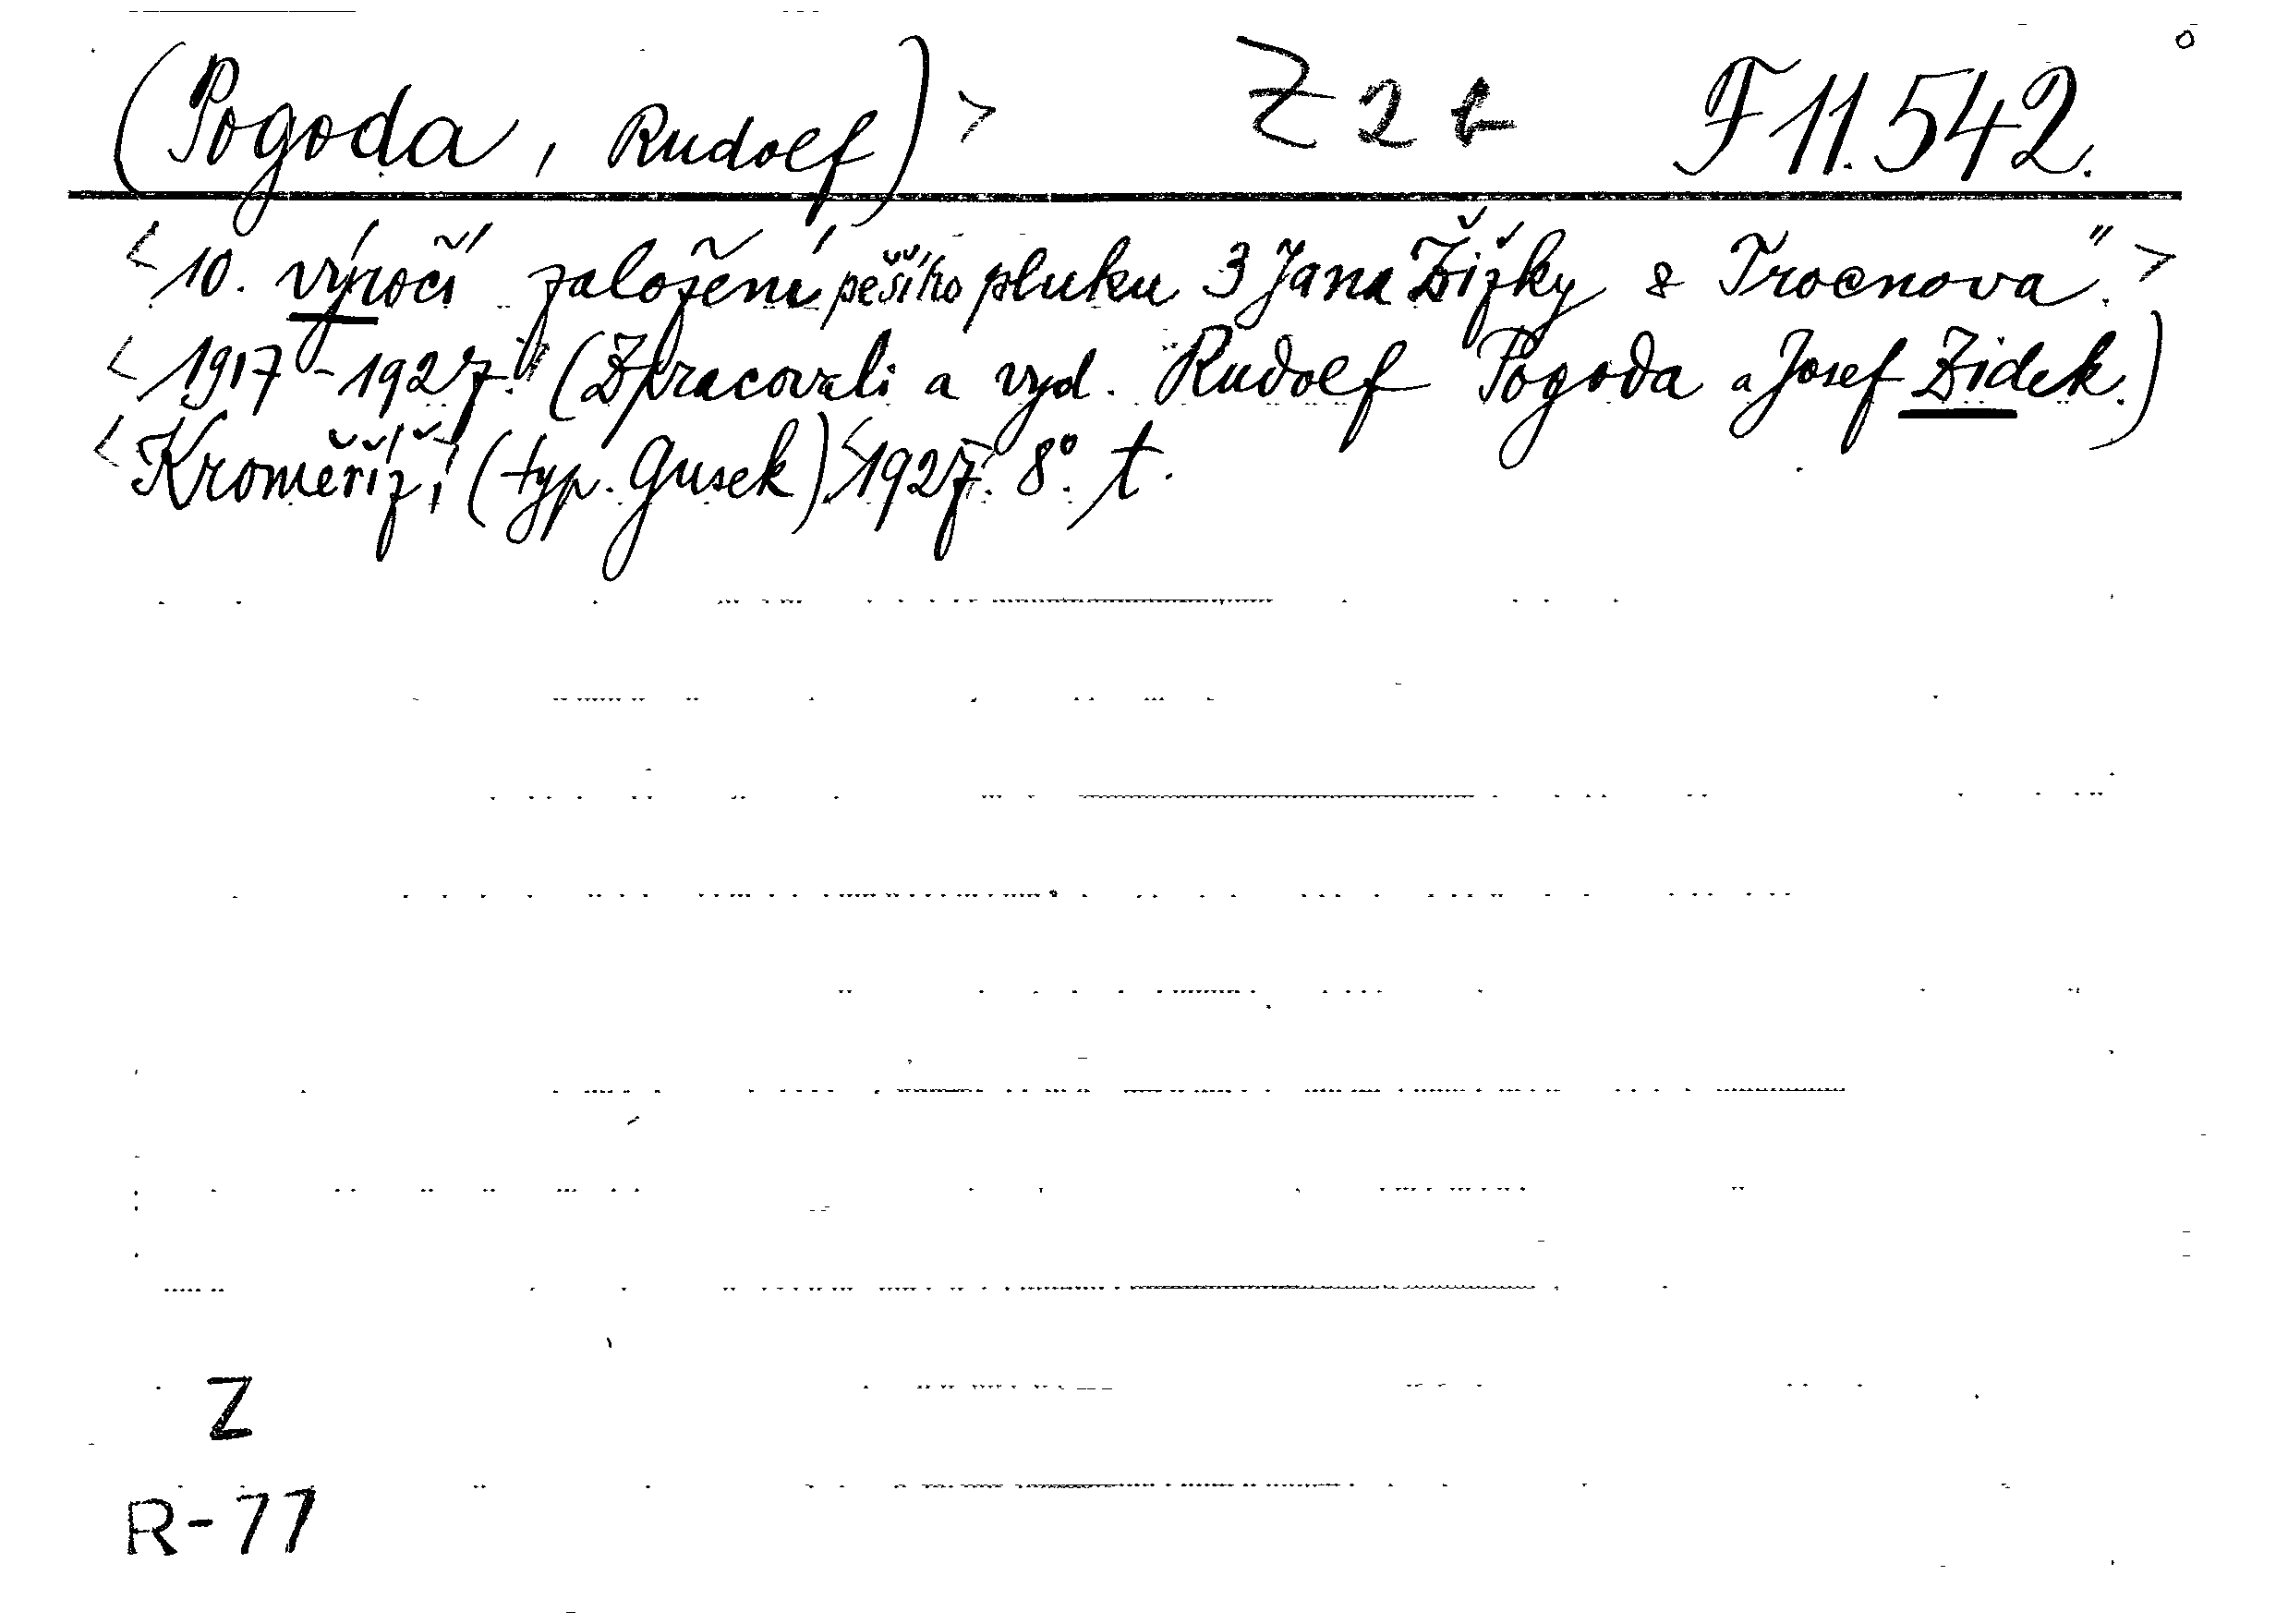 (Pogoda, Rudolf)> Z 2 b F 11.542.
<10. výročí založení pěšího pluku 3 Jana Žižky z Trocnova".>
<1917-1927." (Zpracovali a vyd. Rudolf Pogoda a Josef Zidek.)
<Kroměříž, (typ. Gusek) <1927. 8°. t.
Z
R-77